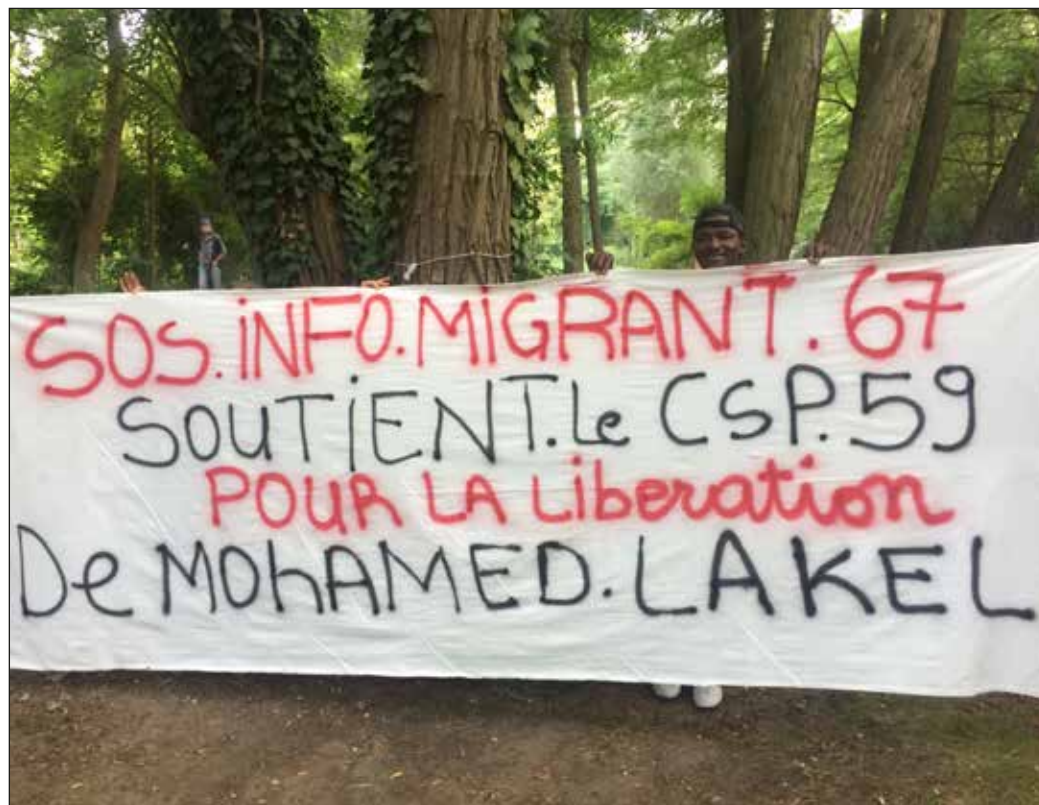 SOS.iNFO.MiGRANT.67
SOUTiENT.Le CSP.59
POUR LA Liberation
De MOhAMED.LAKEL